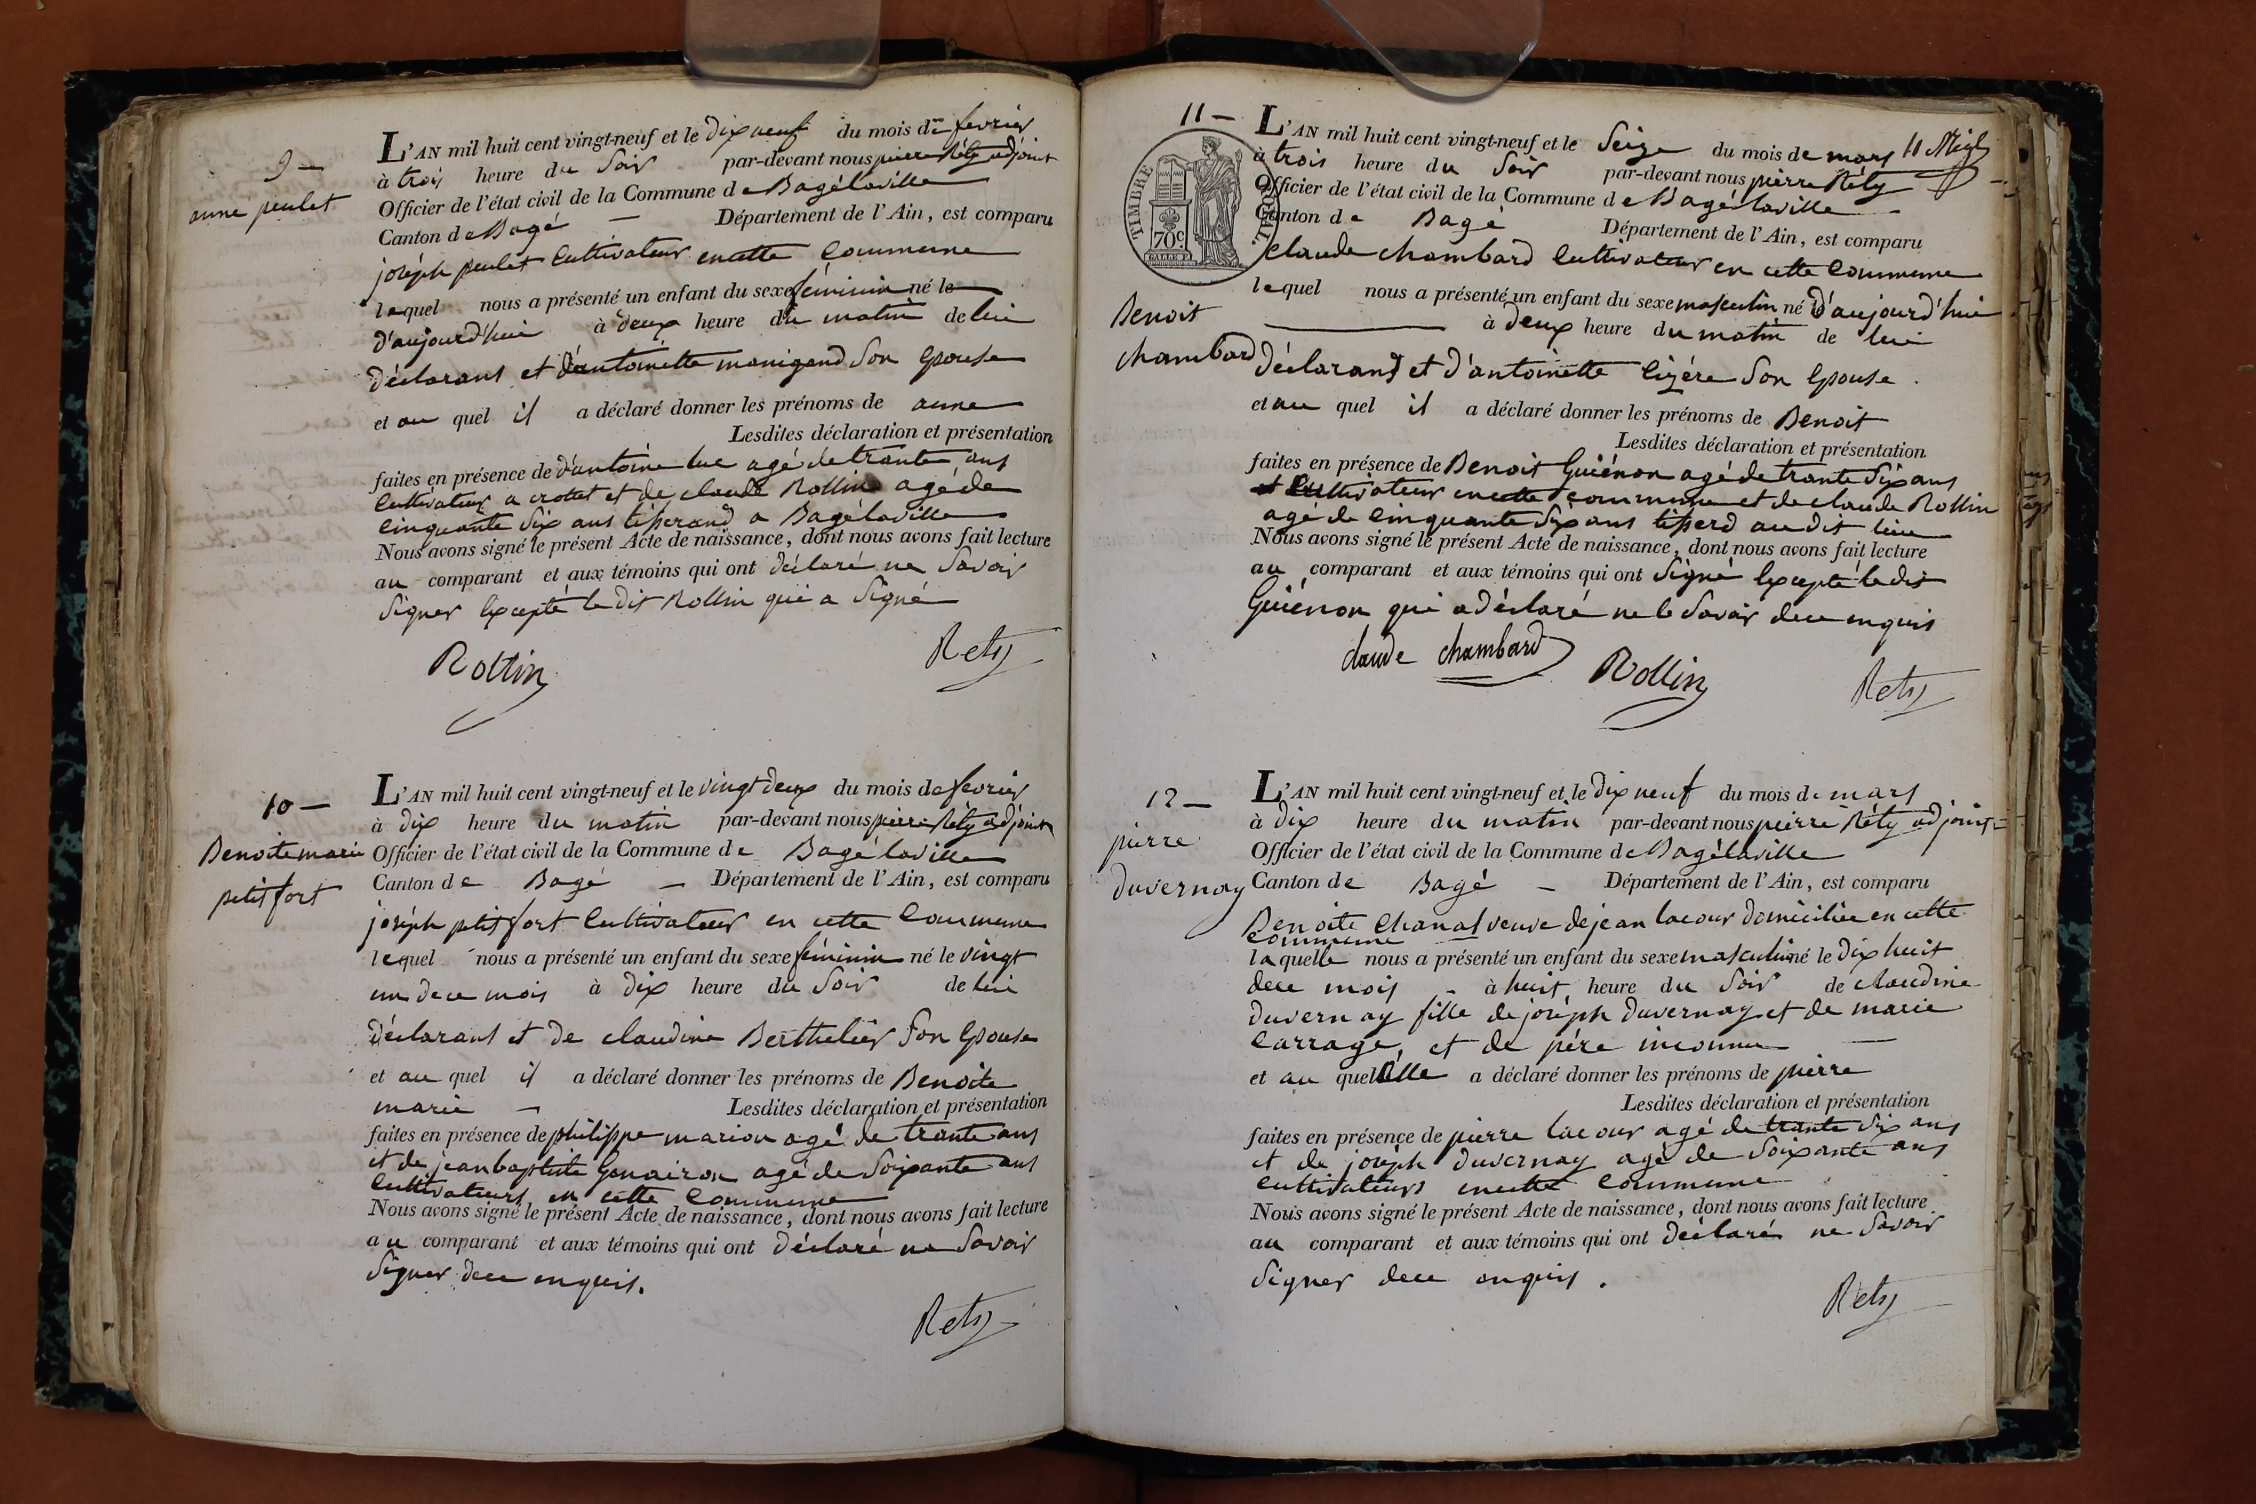 9 —
anne peulet
L'AN mil huit cent vingt-neuf et le dix neuf du mois de fevrier
à trois heure du Soir par-devant nous pierre Réty adjoint
Officier de l'état civil de la Commune de Bagélaville
Canton de Bagé — Département de l'Ain, est comparu
joséph peulet Cultivateur en cette Commune
lequel nous a présenté un enfant du sexe féminin né le
d'aujourd'hui à deux heure du matin de lui
déclarant et d'antoinette manigand Son Epouse
et au quel il a déclaré donner les prénoms de anne
Lesdites déclaration et présentation
faites en présence de d'antoine luc agé de trante ans
Cultivateur a crottet et de claude Rollin agé de
Cinquante Six ans tisserand a Bagélaville
Nous avons signé le présent Acte de naissance, dont nous avons fait lecture
au comparant et aux témoins qui ont déclaré ne Savoir
Signer Excepté le dit Rollin qui a Signé
Rollin Rety
10 —
Benoite marie
petit fort
L'AN mil huit cent vingt-neuf et le vingt deux du mois de fevrier
à dix heure du matin par-devant nous pierre Réty adjoint
Officier de l'état civil de la Commune de Bagélaville
Canton de Bagé — Département de l'Ain, est comparu
joséph ptit fort Cultivateur en cette Commune
lequel nous a présenté un enfant du sexe féminin né le vingt
un de ce mois à dix heure du Soir de lui
déclarant et de claudine Berthelier Son Epouse
et au quel il a déclaré donner les prénoms de Benoite
marie — Lesdites déclaration et présentation
faites en présence de philippe marion agé de trante ans
et de jean baptiste Gonairon agé de Soixante ans
Cultivateurs en cette Commune
Nous avons signé le présent Acte de naissance, dont nous avons fait lecture
au comparant et aux témoins qui ont déclaré ne Savoir
Signer de ce enquis.
Rety
11 —
TIMBRE ROYAL
70c
Benoit
chambard
L'AN mil huit cent vingt-neuf et le Seize du mois de mars 11
à trois heure du Soir par-devant nous pierre Réty
Officier de l'état civil de la Commune de Bagélaville
Canton de Bagé Département de l'Ain, est comparu
Claude chambard Cultivateur en cette Commune
lequel nous a présenté un enfant du sexe masculin né d'aujourd'hui
à deux heure du matin de lui
déclarant et d'antoinette lizére Son Epouse.
et au quel il a déclaré donner les prénoms de Benoit
Lesdites déclaration et présentation
faites en présence de Benoit Guiénon agé de trante Six ans
Cultivateur en cette commune et de claude Rollin
agé de Cinquante Six ans tisserd au dit lieu
Nous avons signé le présent Acte de naissance, dont nous avons fait lecture
au comparant et aux témoins qui ont Signé Excepté le dit
Guiénon qui a déclaré ne le Savoir de ce enquis
claude chambard Rollin Rety
12 —
pierre
duvernay
L'AN mil huit cent vingt-neuf et le dix neuf du mois de mars
à dix heure du matin par-devant nous pierre Réty adjoint
Officier de l'état civil de la Commune de Bagélaville
Canton de Bagé — Département de l'Ain, est comparu
Benoite Chanal veuve de jean lacour domiciliée en cette
commune
laquelle nous a présenté un enfant du sexe masculin né le dix huit
de ce mois à huit heure du Soir de claudine
duvernay fille de joséph duvernay et de marie
Carrage, et de pére inconnu
et au quel Elle a déclaré donner les prénoms de pierre
Lesdites déclaration et présentation
faites en présence de pierre lacour agé de trante Six ans
et de joséph duvernay agé de Soixante ans
cultivateurs en cette Commune
Nous avons signé le présent Acte de naissance, dont nous avons fait lecture
au comparant et aux témoins qui ont déclaré ne Savoir
Signer de ce enquis.
Rety